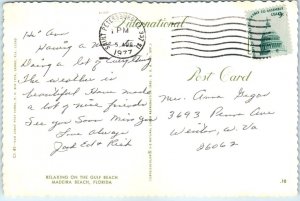 International
SAINT PETERSBURG
PM
5 AUG
1977
USA 9c
Post Card
Hi Ann,
Having a
Doing a lot of everything
The weather is
beautiful Have made
a lot of nice friends
See you Soon Miss you
Love always
Mrs. Anna
3693 Penna Ave
Weirton, W. Va
26062
RELAXING ON THE GULF BEACH
MADEIRA BEACH, FLORIDA